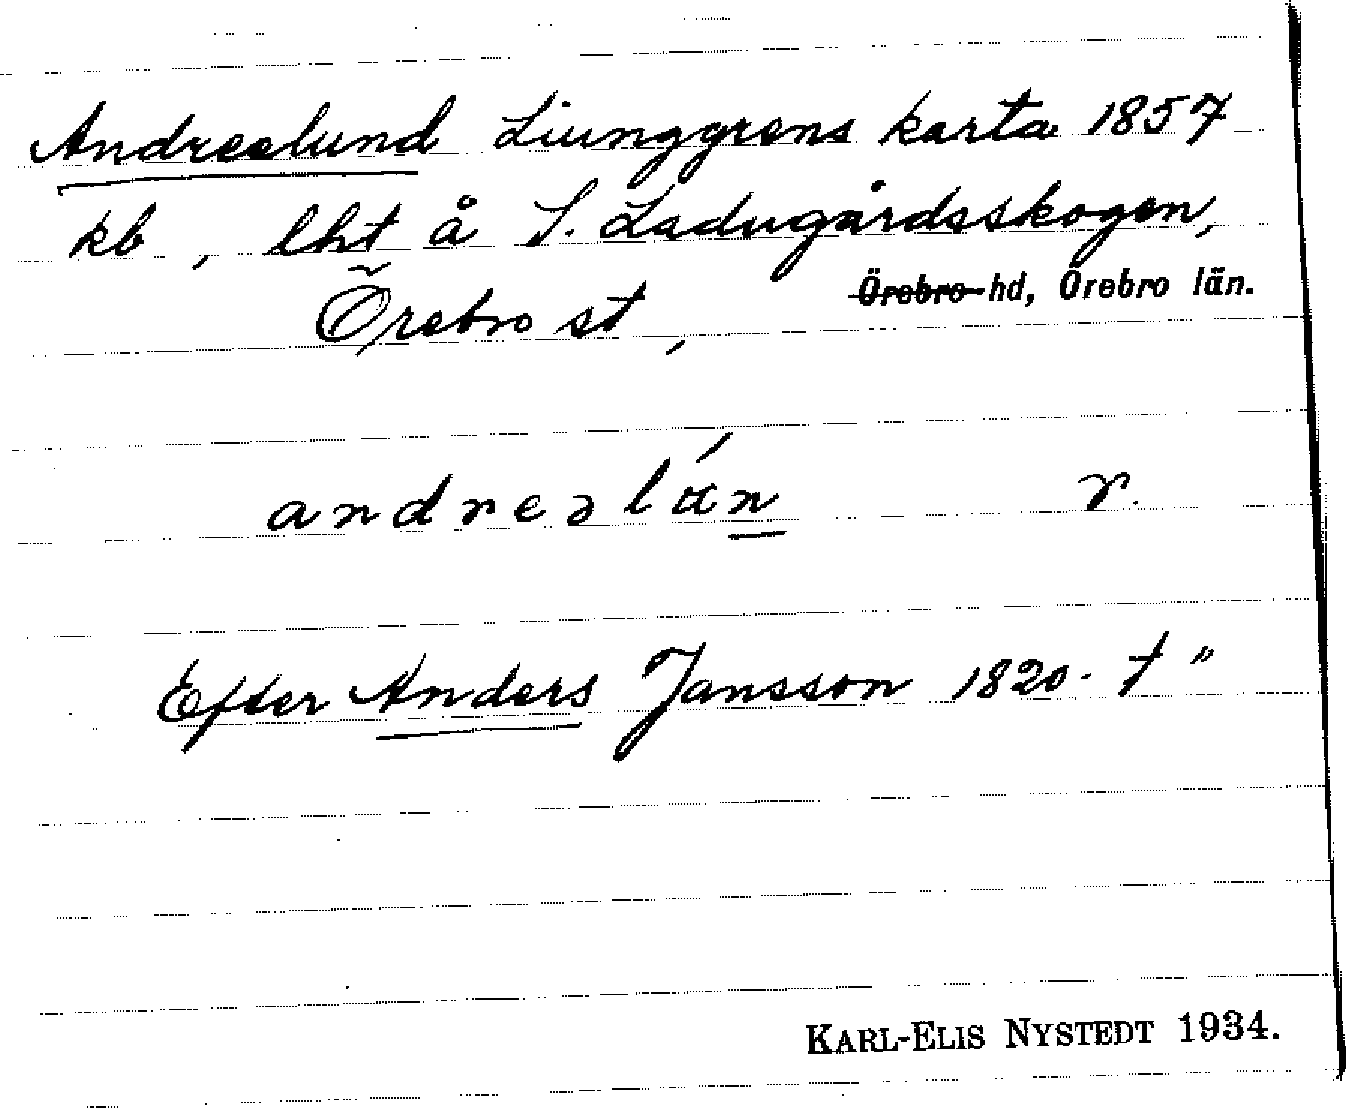 Andreelund Liunggrens karta 1857
kb, lht å S. Ladugårdsskogen,
Örebro st, Örebro hd, Örebro län.
r.
Efter Anders Jansson 1820- † "
KARL-ELIS NYSTEDT 1934.